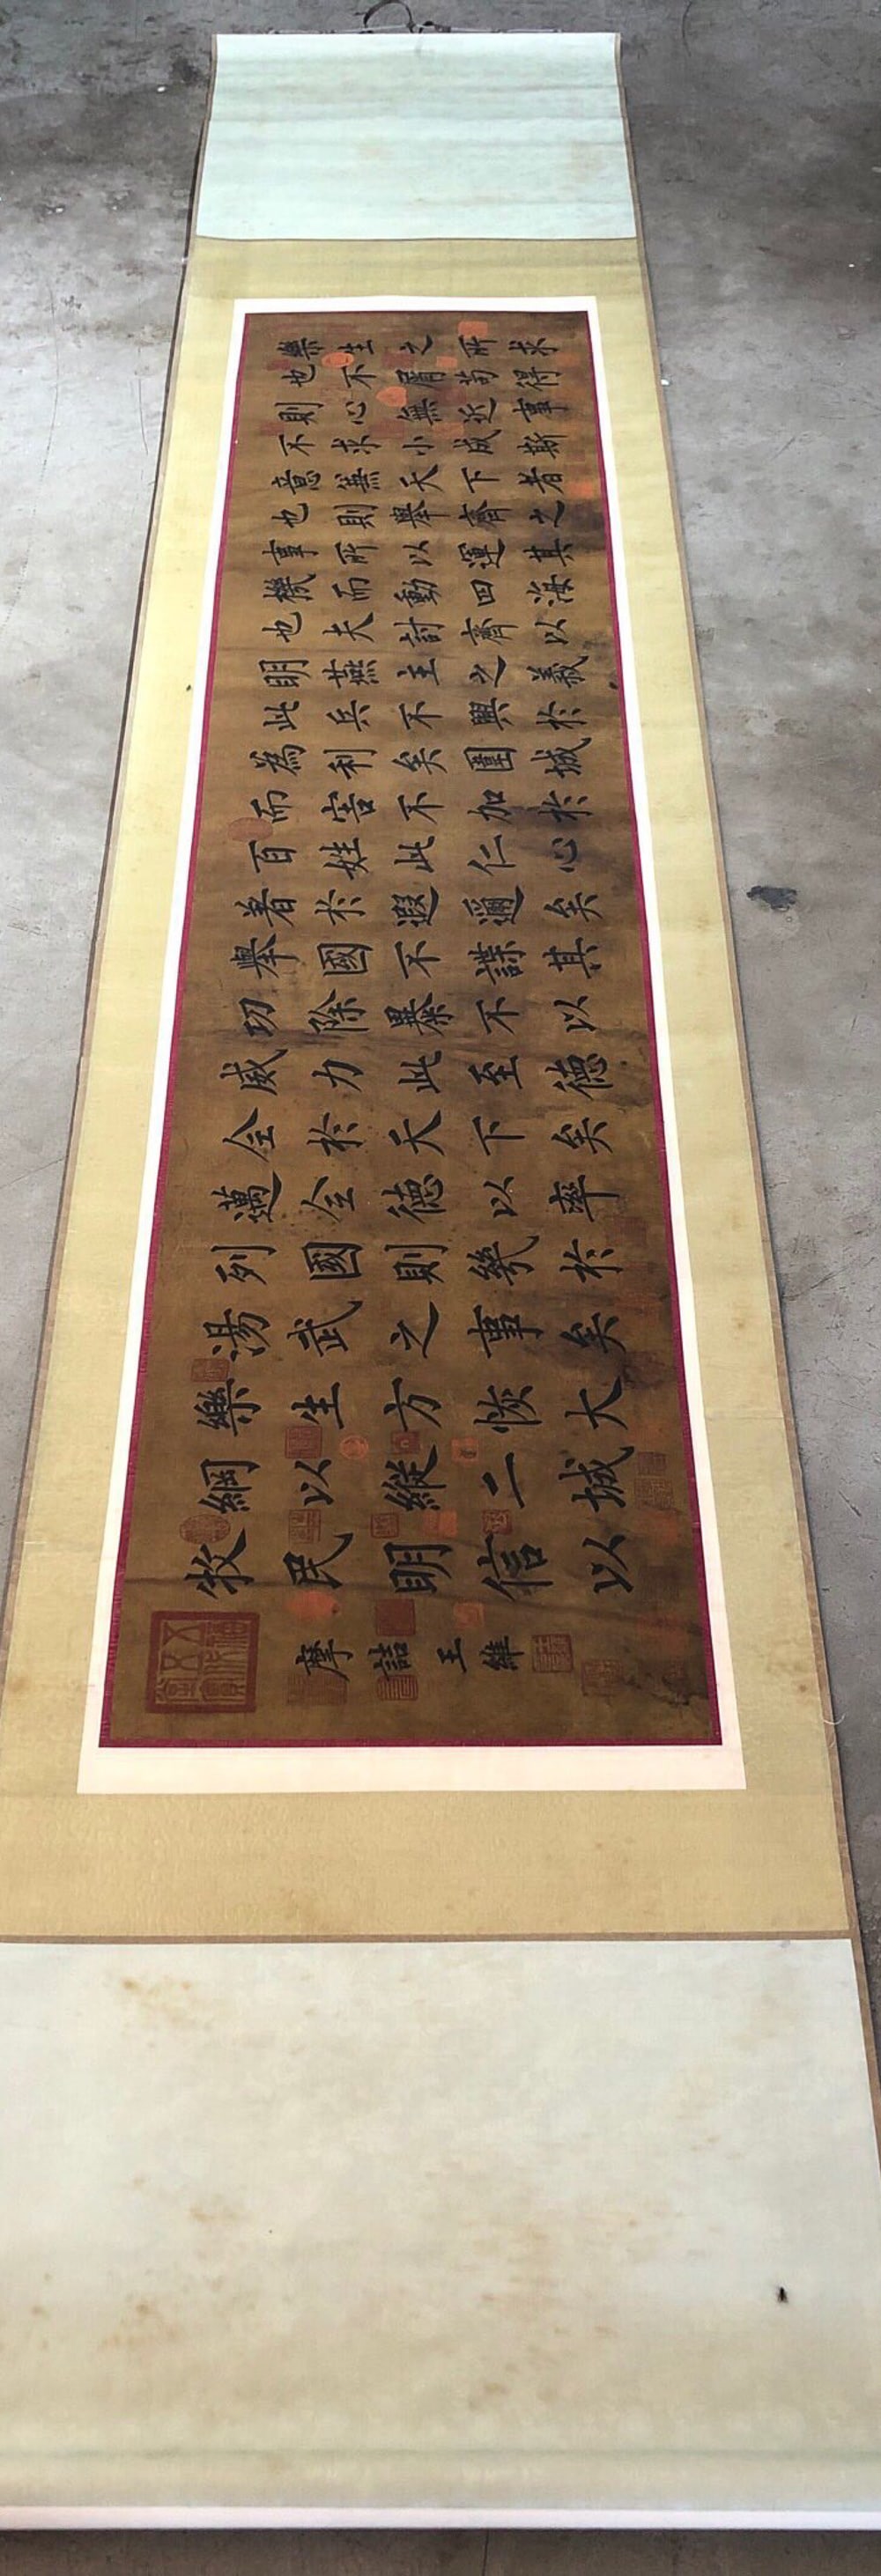 樂生之所求
也不屑苟得
則心無近事
不求小成斯
意無天下者
也則舉齊之
事所以運其
機而動四海
也夫討齊以
明燕主之義
此兵不興於
為利矣圍城
而害不加於
百姓此仁心
著於遐邇矣
舉國不謀其
功除暴不以
威力此至德
全於天下矣
邁全德以率
列國則幾於
湯武之事矣
樂生方恢大
綱以縱二城
牧民明信以
摩詰王維